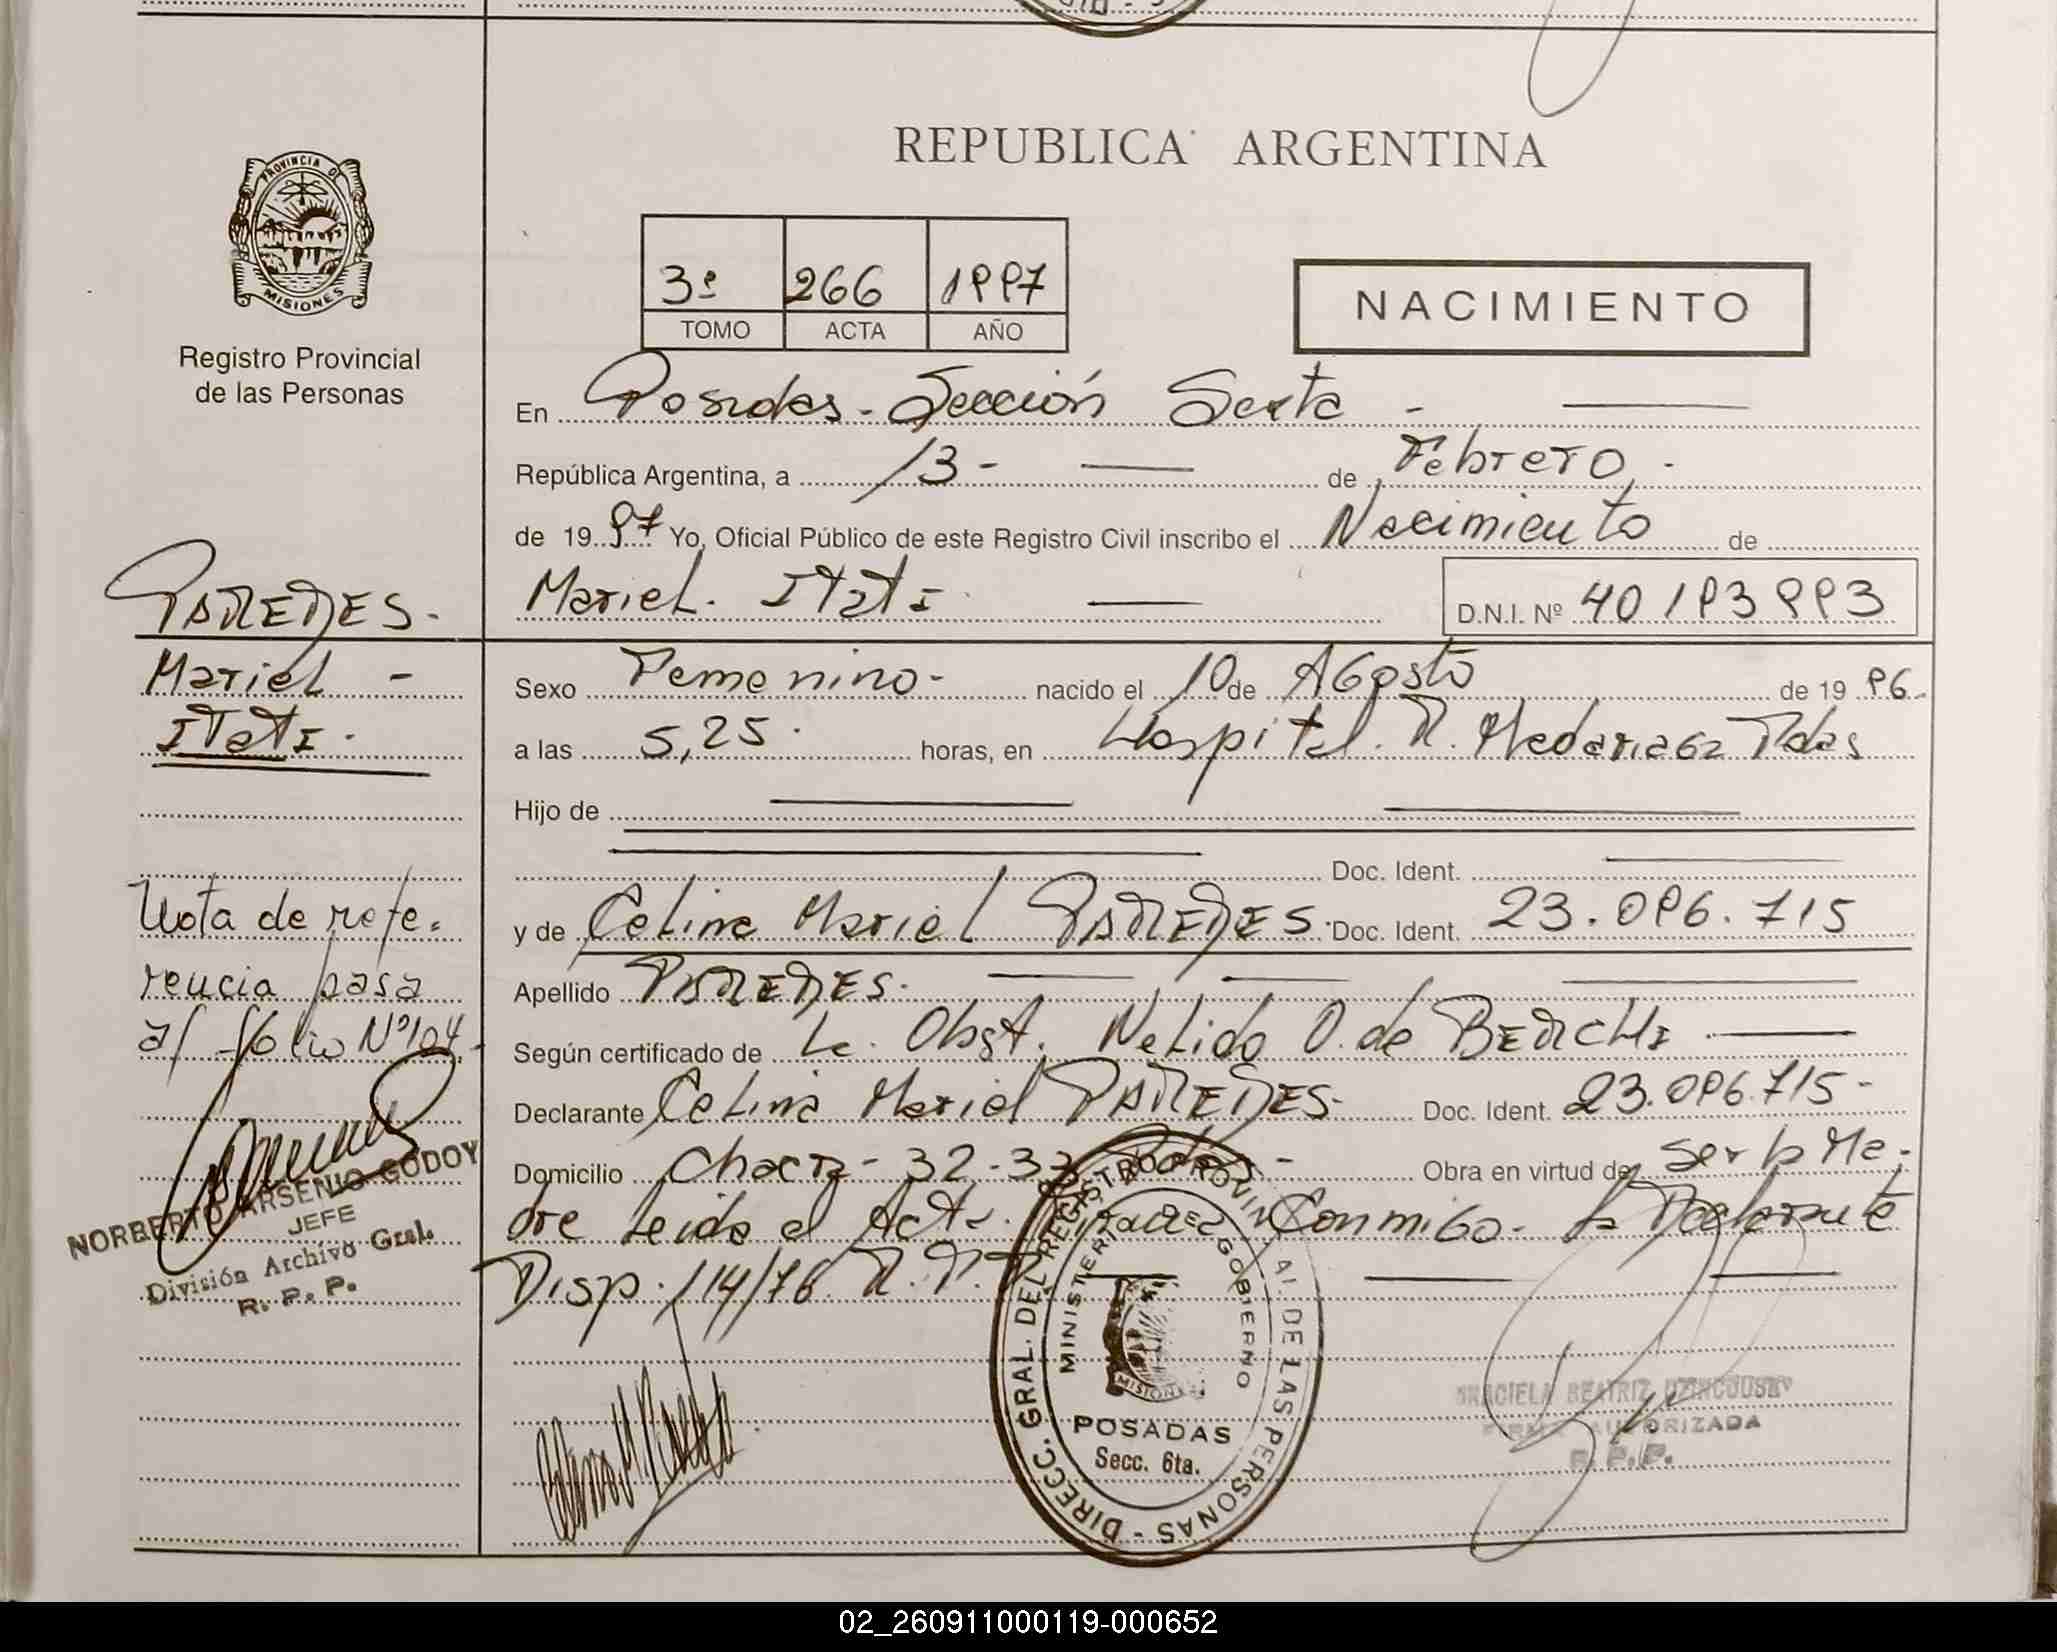 REPUBLICA ARGENTINA
PROVINCIA D
MISIONES
Registro Provincial
de las Personas
3º 266 1997
TOMO ACTA AÑO
NACIMIENTO
En Posadas - Sección Sexta -
República Argentina, a 13 - de Febrero -
de 1997 Yo, Oficial Público de este Registro Civil inscribo el Nacimiento de
Mariel Itati D.N.I. Nº 40 193 993
PAREDES -
Mariel -
Itati -
Sexo Femenino - nacido el 10 de Agosto de 1996 -
a las 5,25 horas, en Hospital R. Madariaga Pdas
Hijo de
Doc. Ident.
y de Celina Mariel PAREDES Doc. Ident. 23.096.715
Apellido PAREDES.
Según certificado de La Obst. Nelida O. de BERCHI
Declarante Celina Mariel PAREDES - Doc. Ident. 23.096.715 -
Domicilio Chacra - 32-33 Pdas - Obra en virtud de ser la Ma-
dre Leida el Acta. Conmigo - la Declarante
Disp. 114/76 R.P.P
Nota de refe-
rencia pasa
al folio Nº 104 -
NORBERTO ARSENIO GODOY
JEFE
División Archivo Gral.
R. P. P.
DIRECC. GRAL. DEL REGISTRO PROVINCIAL DE LAS PERSONAS -
MINISTERIO DE GOBIERNO
MISIONES
POSADAS
Secc. 6ta.
GRACIELA BEATRIZ
FIRMA AUTORIZADA
R. P. P.
02_260911000119-000652